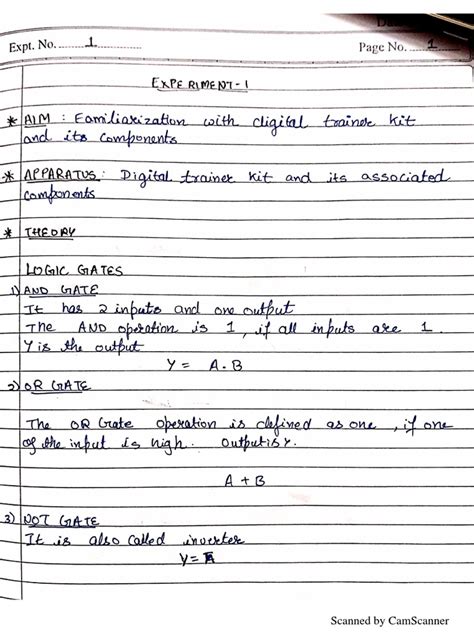 Expt. No. 1
Page No. 1
EXPERIMENT-1
* AIM : Familiarization with digital trainer kit
and its components
* APPARATUS: Digital trainer kit and its associated
components
* THEORY
LOGIC GATES
1) AND GATE
It has 2 inputs and one output
The AND operation is 1, if all inputs are 1.
Y is the output
Y = A.B
2) OR GATE
The OR Gate operation is defined as one, if one
of the input is high. output is Y.
A + B
3) NOT GATE
It is also called inverter
Y =
Scanned by CamScanner